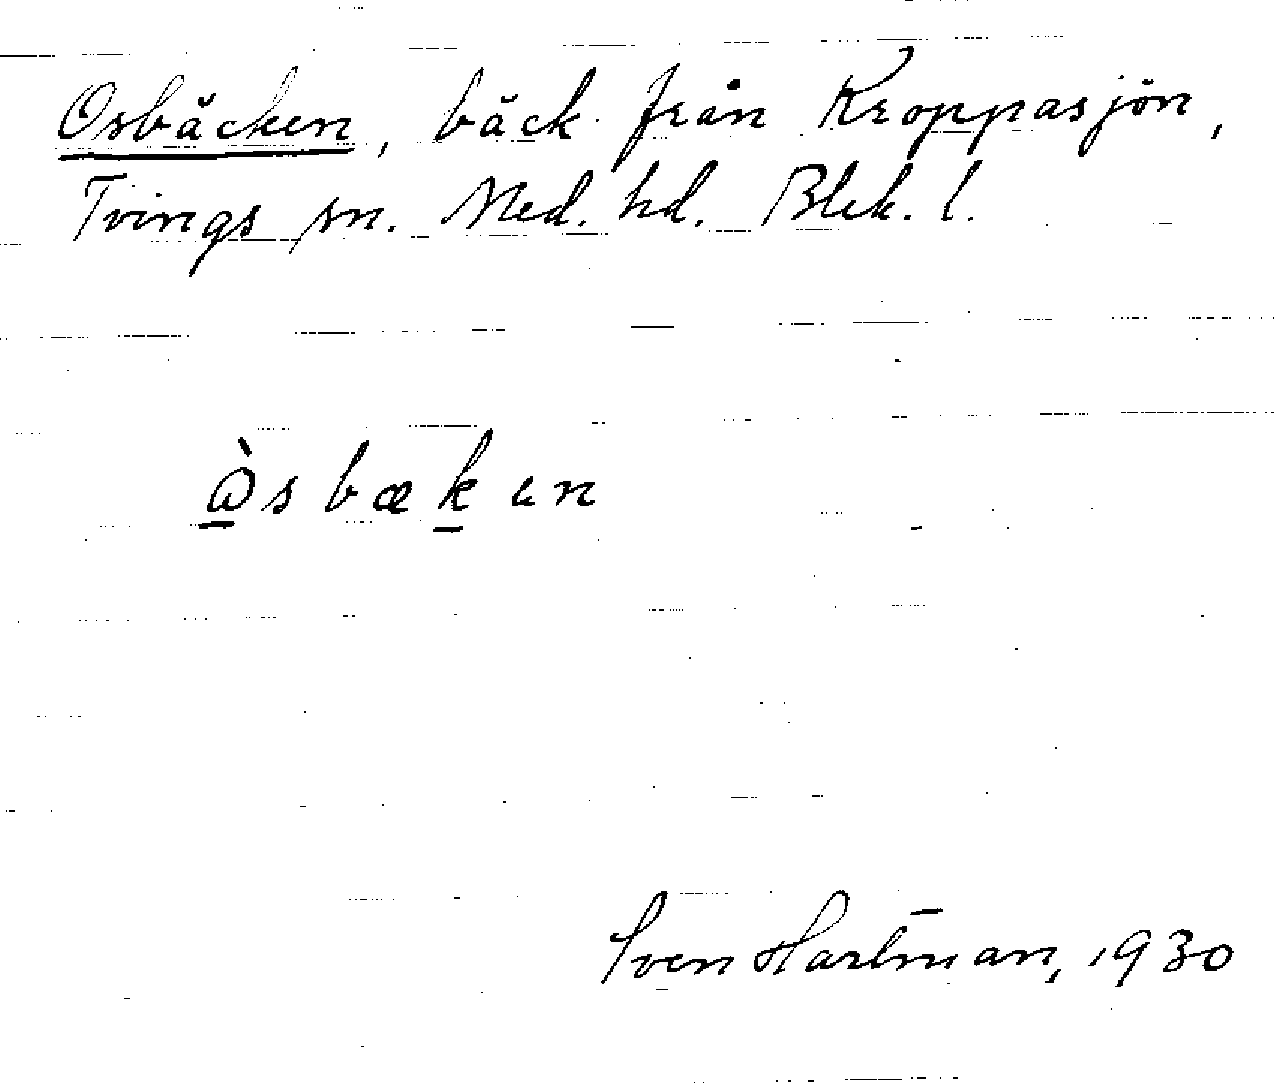 Osbäcken, bäck från Kroppasjön,
Tvings sn. Med. hd. Blek. l.
ὼsbæken
Sven Hartman, 1930